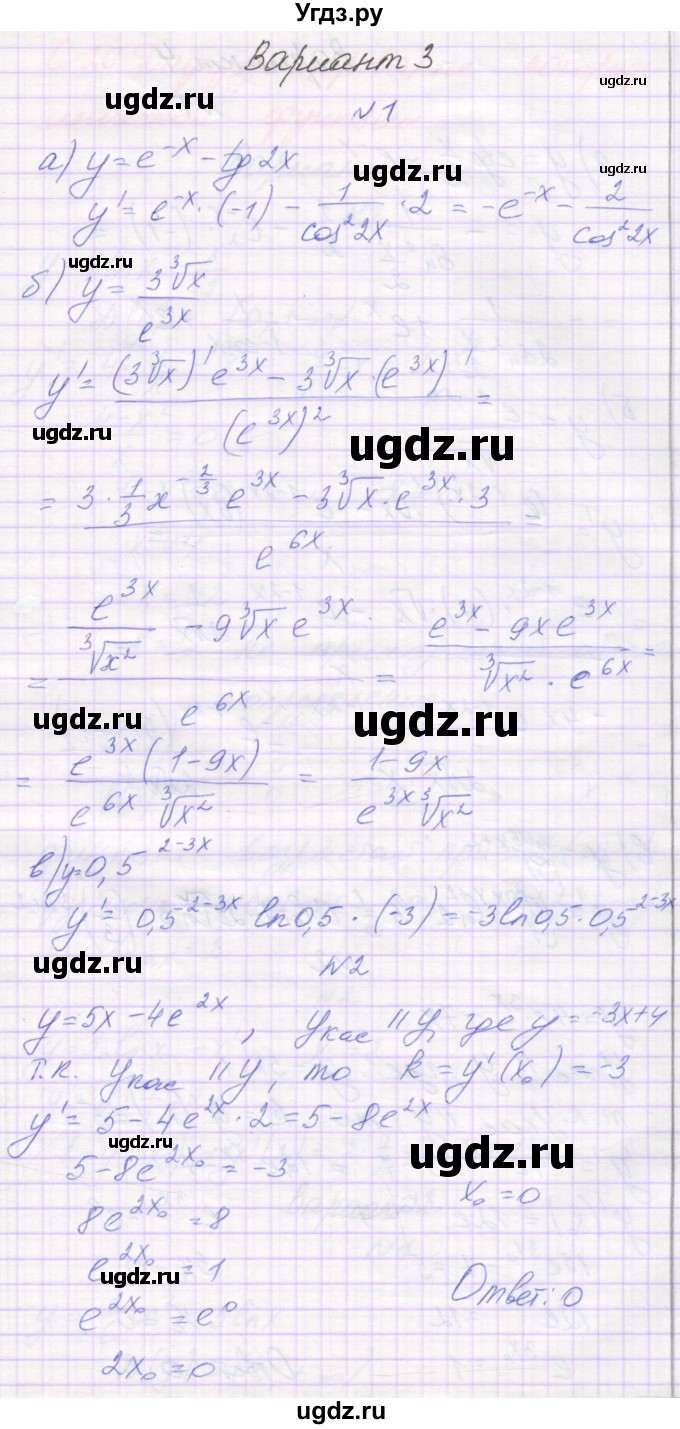 Угдз.ру
Вариант 3
ugdz.ru
ugdz.ru
№1
а) y = e^{-x} - tg 2x
ugdz.ru
ugdz.ru
y' = e^{-x} · (-1) - 1/cos²2x · 2 = -e^{-x} - 2/cos²2x
ugdz.ru
ugdz.ru
б) y = 3∛x / e^{3x}
y' = ((3∛x)' e^{3x} - 3∛x · (e^{3x})') / (e^{3x})² =
ugdz.ru
ugdz.ru
= (3 · 1/3 x^{-2/3} e^{3x} - 3∛x · e^{3x} · 3) / e^{6x} =
= (e^{3x}/∛x² - 9∛x e^{3x}) / e^{6x} = (e^{3x} - 9x e^{3x}) / (∛x² · e^{6x}) =
ugdz.ru
ugdz.ru
= e^{3x}(1-9x) / (e^{6x} ∛x²) = (1-9x) / (e^{3x} ∛x²)
в) y = 0,5^{2-3x}
y' = 0,5^{2-3x} ln0,5 · (-3) = -3ln0,5 · 0,5^{2-3x}
ugdz.ru
ugdz.ru
№2
y = 5x - 4e^{2x}, yкас || y, где y = -3x+4
т.к. yкас || y, то k = y'(x₀) = -3
y' = 5 - 4e^{2x} · 2 = 5 - 8e^{2x}
ugdz.ru
ugdz.ru
5 - 8e^{2x₀} = -3
x₀ = 0
8e^{2x₀} = 8
e^{2x₀} = 1
ugdz.ru
Ответ: 0
e^{2x₀} = e⁰
2x₀ = 0
ugdz.ru